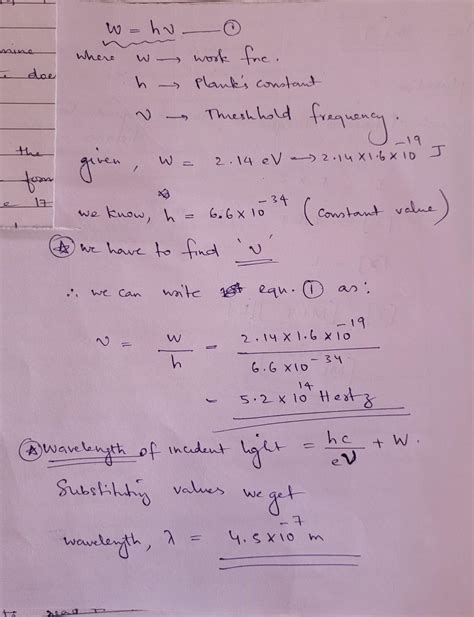 W = hν —— ①
where W → work fnc.
mine
h → Plank's constant
doe
ν → Threshhold frequency.
the
given, W = 2.14 eV → 2.14 x 1.6 x 10^-19 J
form
we know, h = 6.6 x 10^-34 (constant value)
e 17
we have to find 'ν'
∴ we can write eqn. ① as:
ν = W/h = 2.14 x 1.6 x 10^-19 / 6.6 x 10^-34
= 5.2 x 10^14 Hertz
Wavelength of incident light = hc/eV + W.
Substitutig values we get
wavelength, λ = 4.5 x 10^-7 m